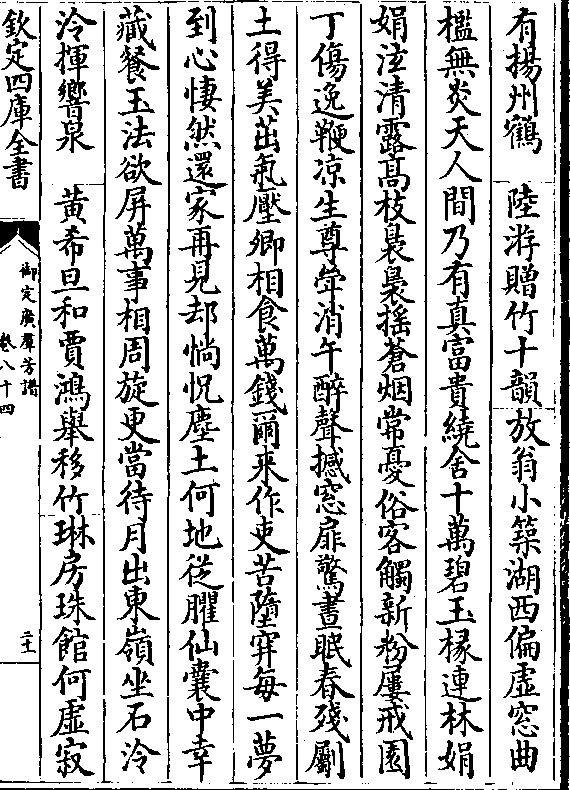 有揚州鶴　陸游贈竹十韻放翁小築湖西偏虛窓曲
檻無炎天人間乃有真富貴繞舍十萬碧玉椽連林娟
娟泫清露髙枝裊裊揺蒼烟常憂俗客觸新粉屢戒園
丁傷逸鞭凉生尊斝消午醉聲撼窓扉驚晝眠春殘劚
土得美茁氣壓卿相食萬錢爾来作吏苦墮穽每一夢
到心悽然還家再見却惝怳塵土何地從臞仙囊中幸
藏餐玉法欲屏萬事相周旋更當待月出東嶺坐石泠
泠揮響泉　黃希旦和賈鴻舉移竹琳房珠館何虛寂
欽定四庫全書
御定廣羣芳譜
卷八十四
二十